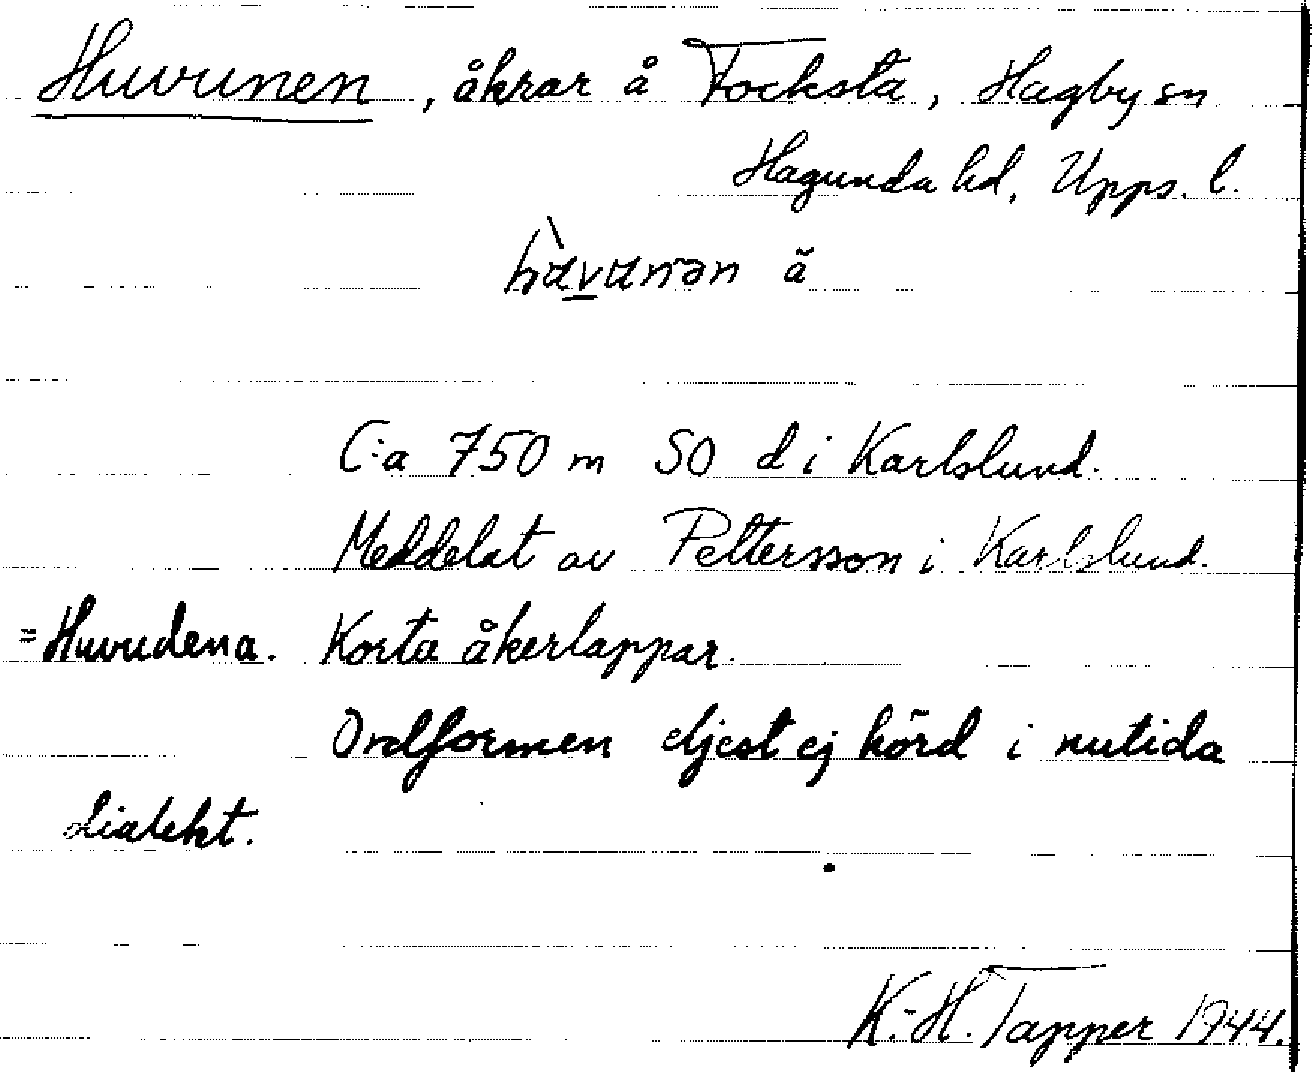 Huvunen, åkrar å Focksta, Hagby sn
Hagunda hd, Upps. l.
hùvunən ā
C:a 750 m SO d i Karlslund.
Meddelat av Pettersson i Karlslund.
=Huvudena. Korta åkerlappar.
Ordformen eljest ej hörd i nutida
dialekt.
K.-H. Tapper 1944.